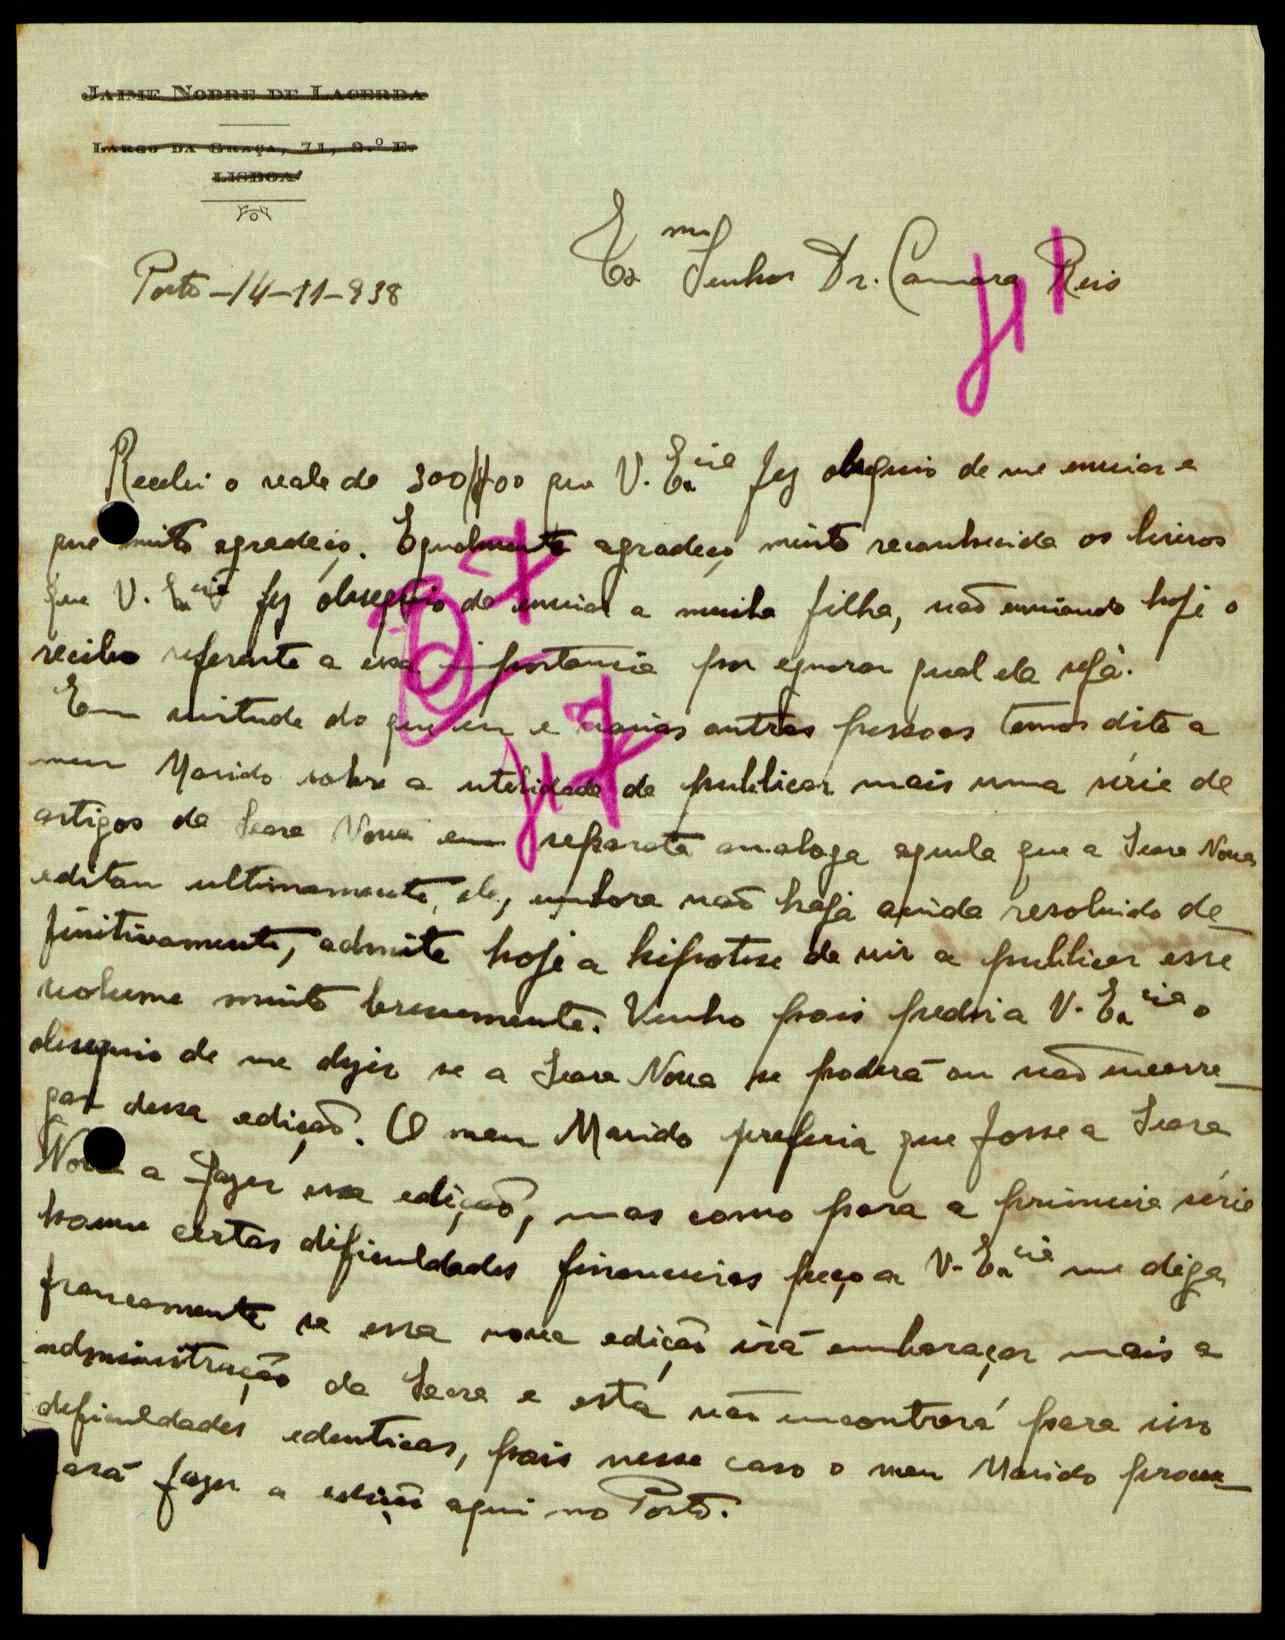 JAIME NOBRE DE LACERDA
LARGO DA GRAÇA, 71, 2.º E.
LISBOA
Exmo Senhor Dr. Camara Reis
Porto-14-11-938
Recebi o vale de 300$00 que V. Excia fez obsequio de me enviar e
que muito agradeço. Egualmente agradeço muito reconhecida os livros
que V. Excia fez obsequio de enviar a minha filha, não enviando hoje o
recibo referente a essa importancia por egnorar qual ela seja.
Em virtude do que eu e varias outras pessoas temos dito a
meu Marido sobre a utelidade de publicar mais uma série de
artigos da Seara Nova em separata analoga aquela que a Seara Nova
editou ultimamente, ele, embora não haja ainda resolvido de-
finitivamente, admite hoje a hipotese de vir a publicar esse
volume muito brevemente. Venho pois pedir a V. Excia o
obsequio de me dizer se a Seara Nova se poderá ou não encarre-
gar dessa edição. O meu Marido preferia que fosse a Seara
Nova a fazer essa edição, mas como para a primeira série
houve certas dificuldades financeiras peço a V. Excia me diga
francamente se essa nova edição irá embaraçar mais a
administração da Seara e esta não encontrará para isso
deficuldades edenticas, pois nesse caso o meu Marido procu-
rará fazer a edição aqui no Porto.